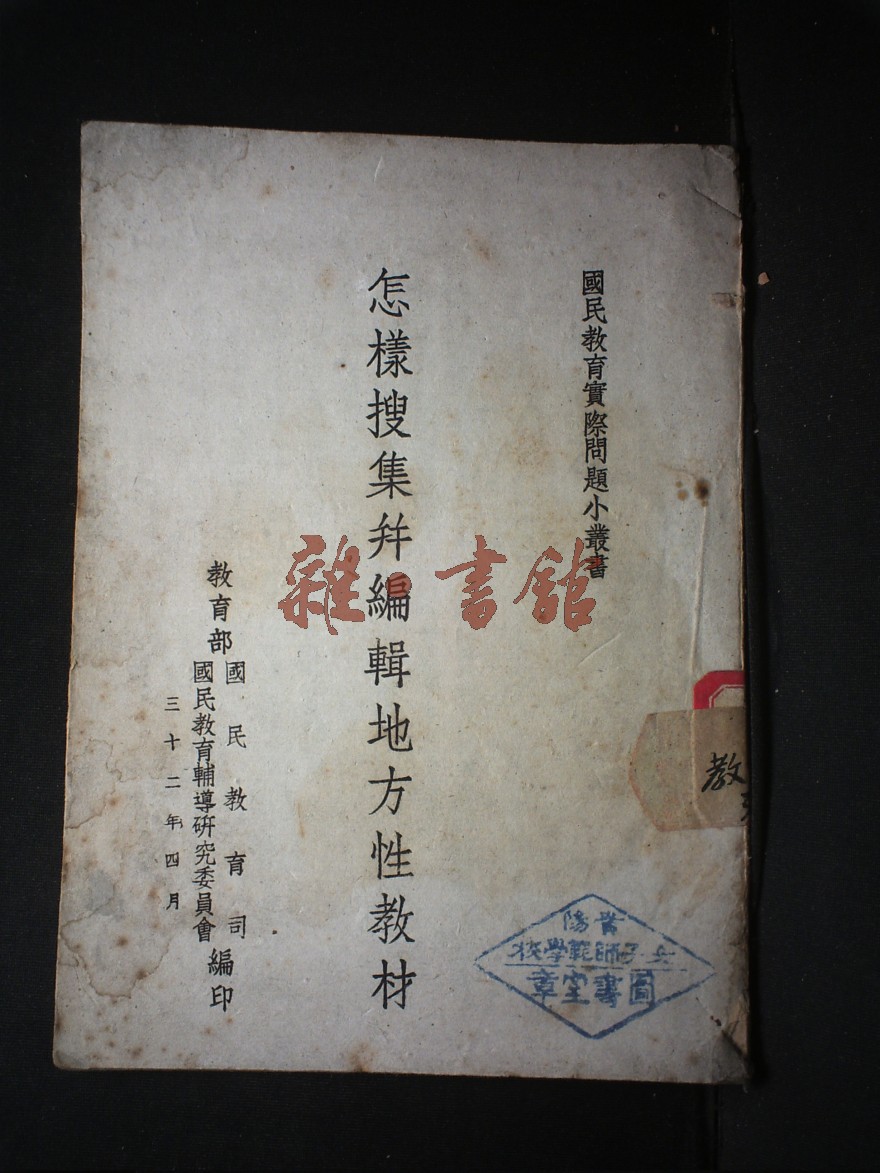 國民教育實際問題小叢書
怎樣搜集并編輯地方性教材
教育部
國民教育司
國民教育輔導研究委員會
編印
三十二年四月
雜書館
教
陽
師範學校
圖書室章